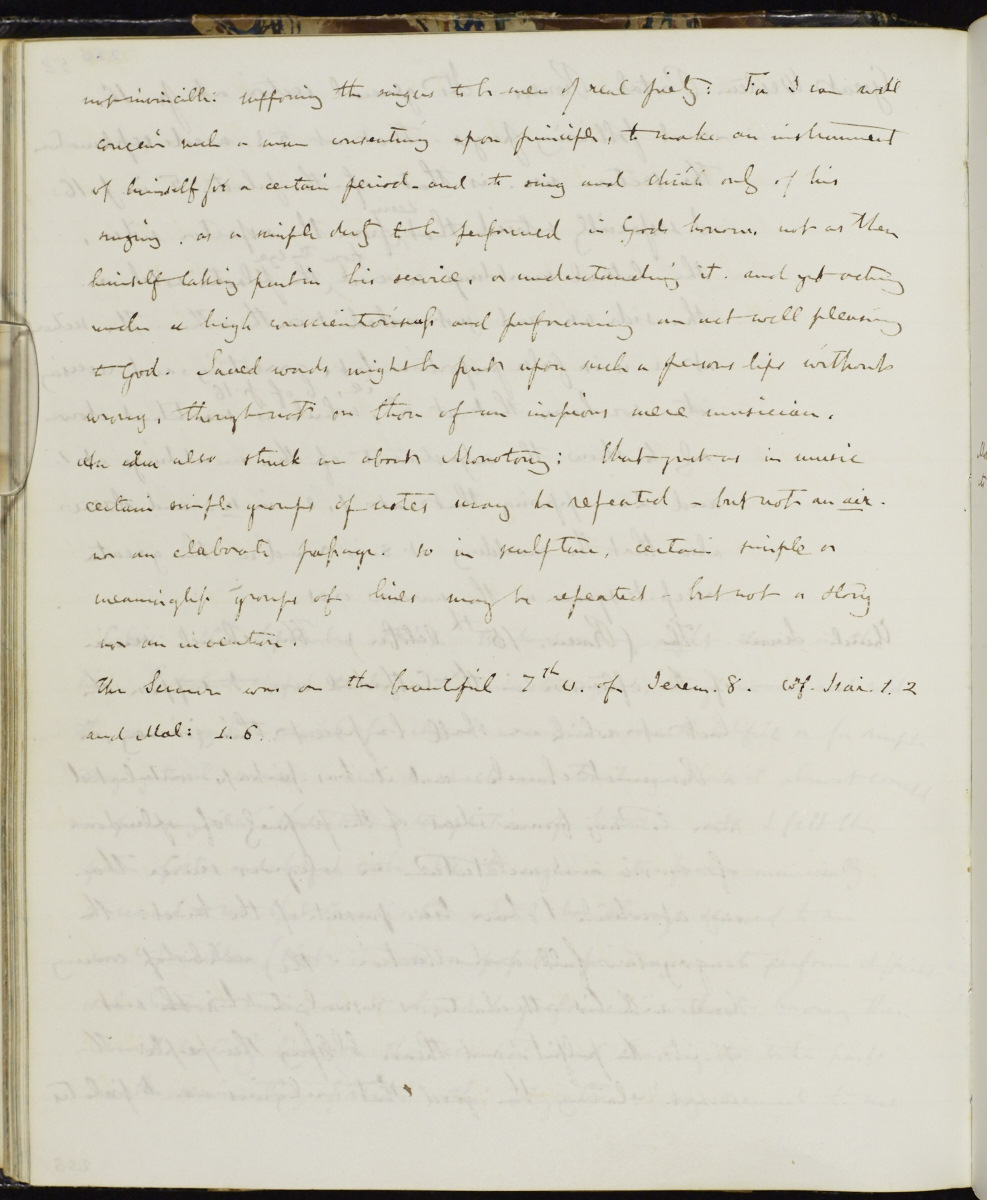 not invincible: supposing the singers to be men of real piety: For I can well
conceive such a man consenting upon principle, to make an instrument
of himself for a certain period - and to sing and think only of his
singing, as a simple duty to be performed in Gods honour, not as then
himself taking part in his service, or understanding it. and yet acting
under a high conscientiousness and performing an act well pleasing
to God. Sacred words might be put upon such a persons lips without
wrong, though not on those of an impious mere musician.
An idea also struck me about Monotony: that just as in music
certain simple groups of notes may be repeated - but not an air.
nor an elaborate passage. so in sculpture, certain simple or
meaningless groups of lines may be repeated - but not a story
nor an invention.
The Sermon was on the beautiful 7th v. of Jerem. 8. Cf. Isai. 1. 2
and Mal: 1. 6.